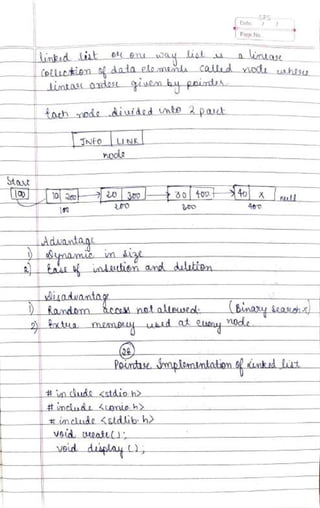 Date / /
Page No.
linked list or one way list is a linear
collection of data elements called node where
linear order given by pointer.
Each node divided into 2 part
INFO LINK
node
Start
100 10 200 20 300 30 400 40 X null
100 200 300 400
Advantage
1) Dynamic in size
2) Ease of insertion and deletion
Disadvantage
1) Random access not allowed. (Binary search x)
2) Extra memory used at every node.
28
Pointer Implementation of Linked list
# include <stdio.h>
# include <conio.h>
# include <stdlib.h>
void create();
void display();